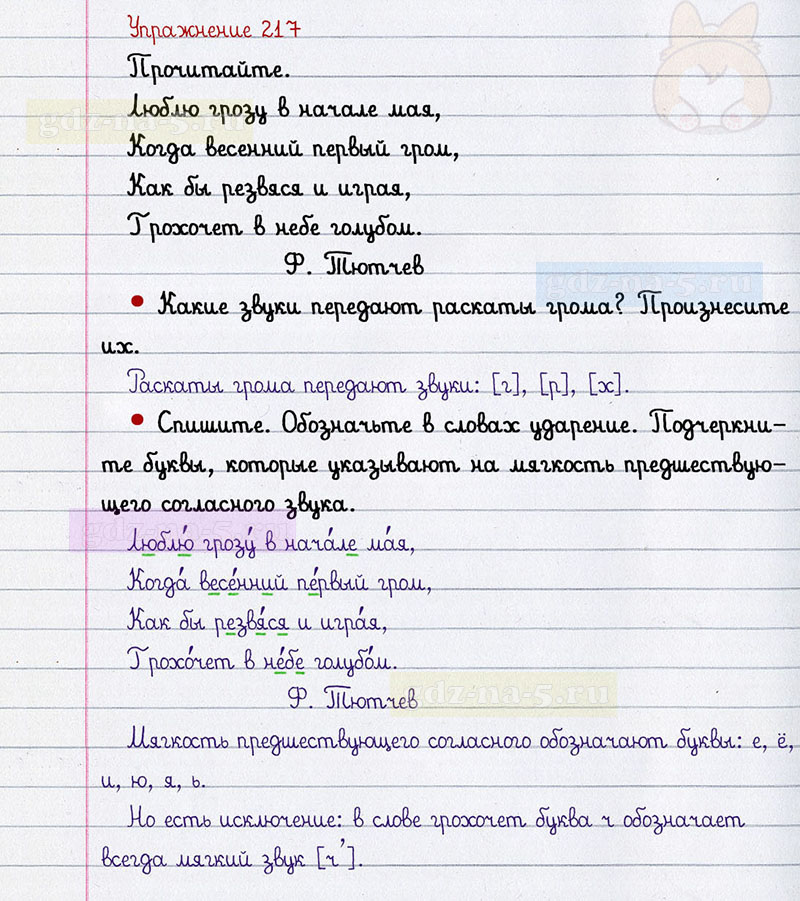 Упражнение 217
Прочитайте.
Люблю грозу в начале мая,
gdz-na-5.ru
Когда весенний первый гром,
Как бы резвяся и играя,
Грохочет в небе голубом.
Ф. Тютчев
gdz-na-5.ru
• Какие звуки передают раскаты грома? Произнесите
их.
Раскаты грома передают звуки: [г], [р], [х].
• Спишите. Обозначьте в словах ударение. Подчеркни-
те буквы, которые указывают на мягкость предшествую-
щего согласного звука.
gdz-na-5.ru
Люблю́ грозу́ в нача́ле ма́я,
Когда́ весе́нний пе́рвый гром,
Как бы резвя́ся и игра́я,
Грохо́чет в не́бе голубо́м.
gdz-na-5.ru
Ф. Тютчев
Мягкость предшествующего согласного обозначают буквы: е, ё,
и, ю, я, ь.
Но есть исключение: в слове грохочет буква ч обозначает
всегда мягкий звук [ч'].